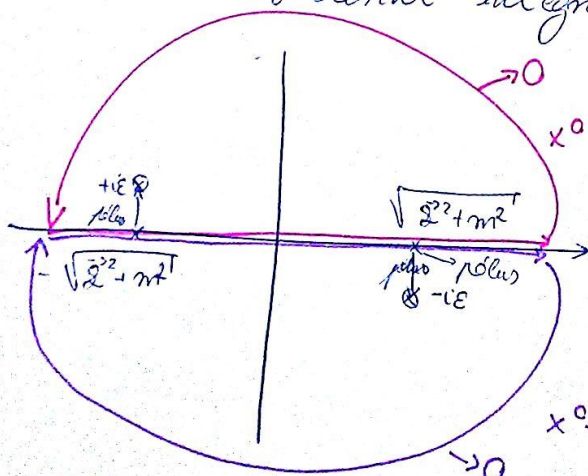 →0
x⁰
+iε
pólus
√q⃗²+m²
- √q⃗²+m²
pólus
pólus
-iε
x⁰
→0